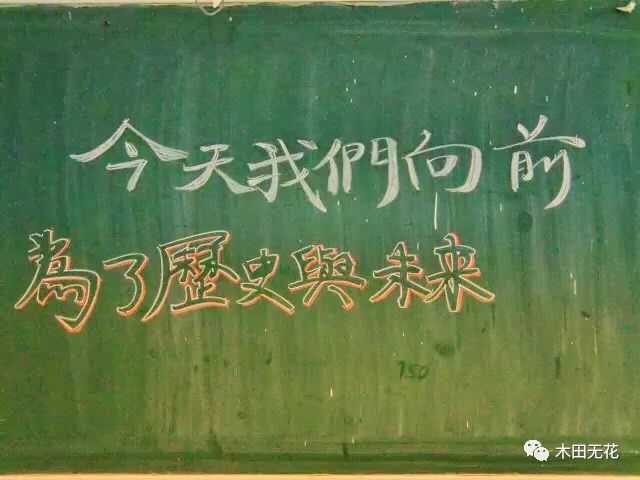 今天我們向前
為了歷史與未来
150
木田无花